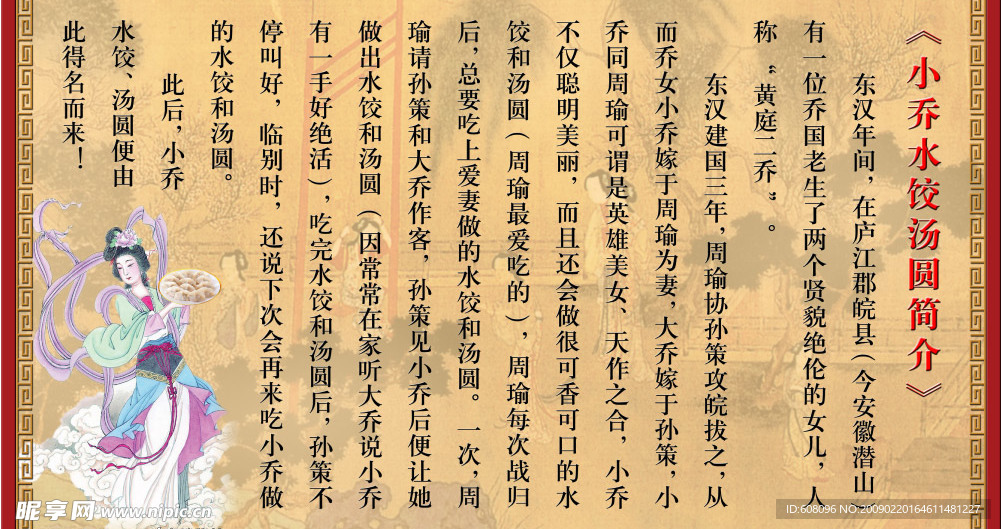 《小乔水饺汤圆简介》
东汉年间，在庐江郡皖县（今安徽潜山
有一位乔国老生了两个贤貌绝伦的女儿，人
称“黄庭二乔”。
东汉建国三年，周瑜协孙策攻皖拔之，从
而乔女小乔嫁于周瑜为妻，大乔嫁于孙策，小
乔同周瑜可谓是英雄美女、天作之合，小乔
不仅聪明美丽，而且还会做很可香可口的水
饺和汤圆（周瑜最爱吃的），周瑜每次战归
后，总要吃上爱妻做的水饺和汤圆。一次，周
瑜请孙策和大乔作客，孙策见小乔后便让她
做出水饺和汤圆（因常常在家听大乔说小乔
有一手好绝活），吃完水饺和汤圆后，孙策不
停叫好，临别时，还说下次会再来吃小乔做
的水饺和汤圆。
此后，小乔
水饺、汤圆便由
此得名而来！
昵享网 www.nipic.cn
ID:608096 NO:20090220164611481227